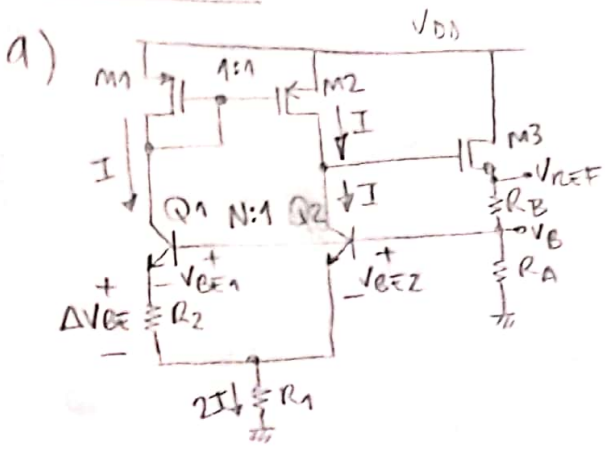 a)
VDD
M1
1:1
M2
I
M3
I
VREF
I
Q1 N:1 Q2
RB
VB
+
+
- VBE1
- VBE2
RA
+
ΔVBE
R2
-
2I
R1